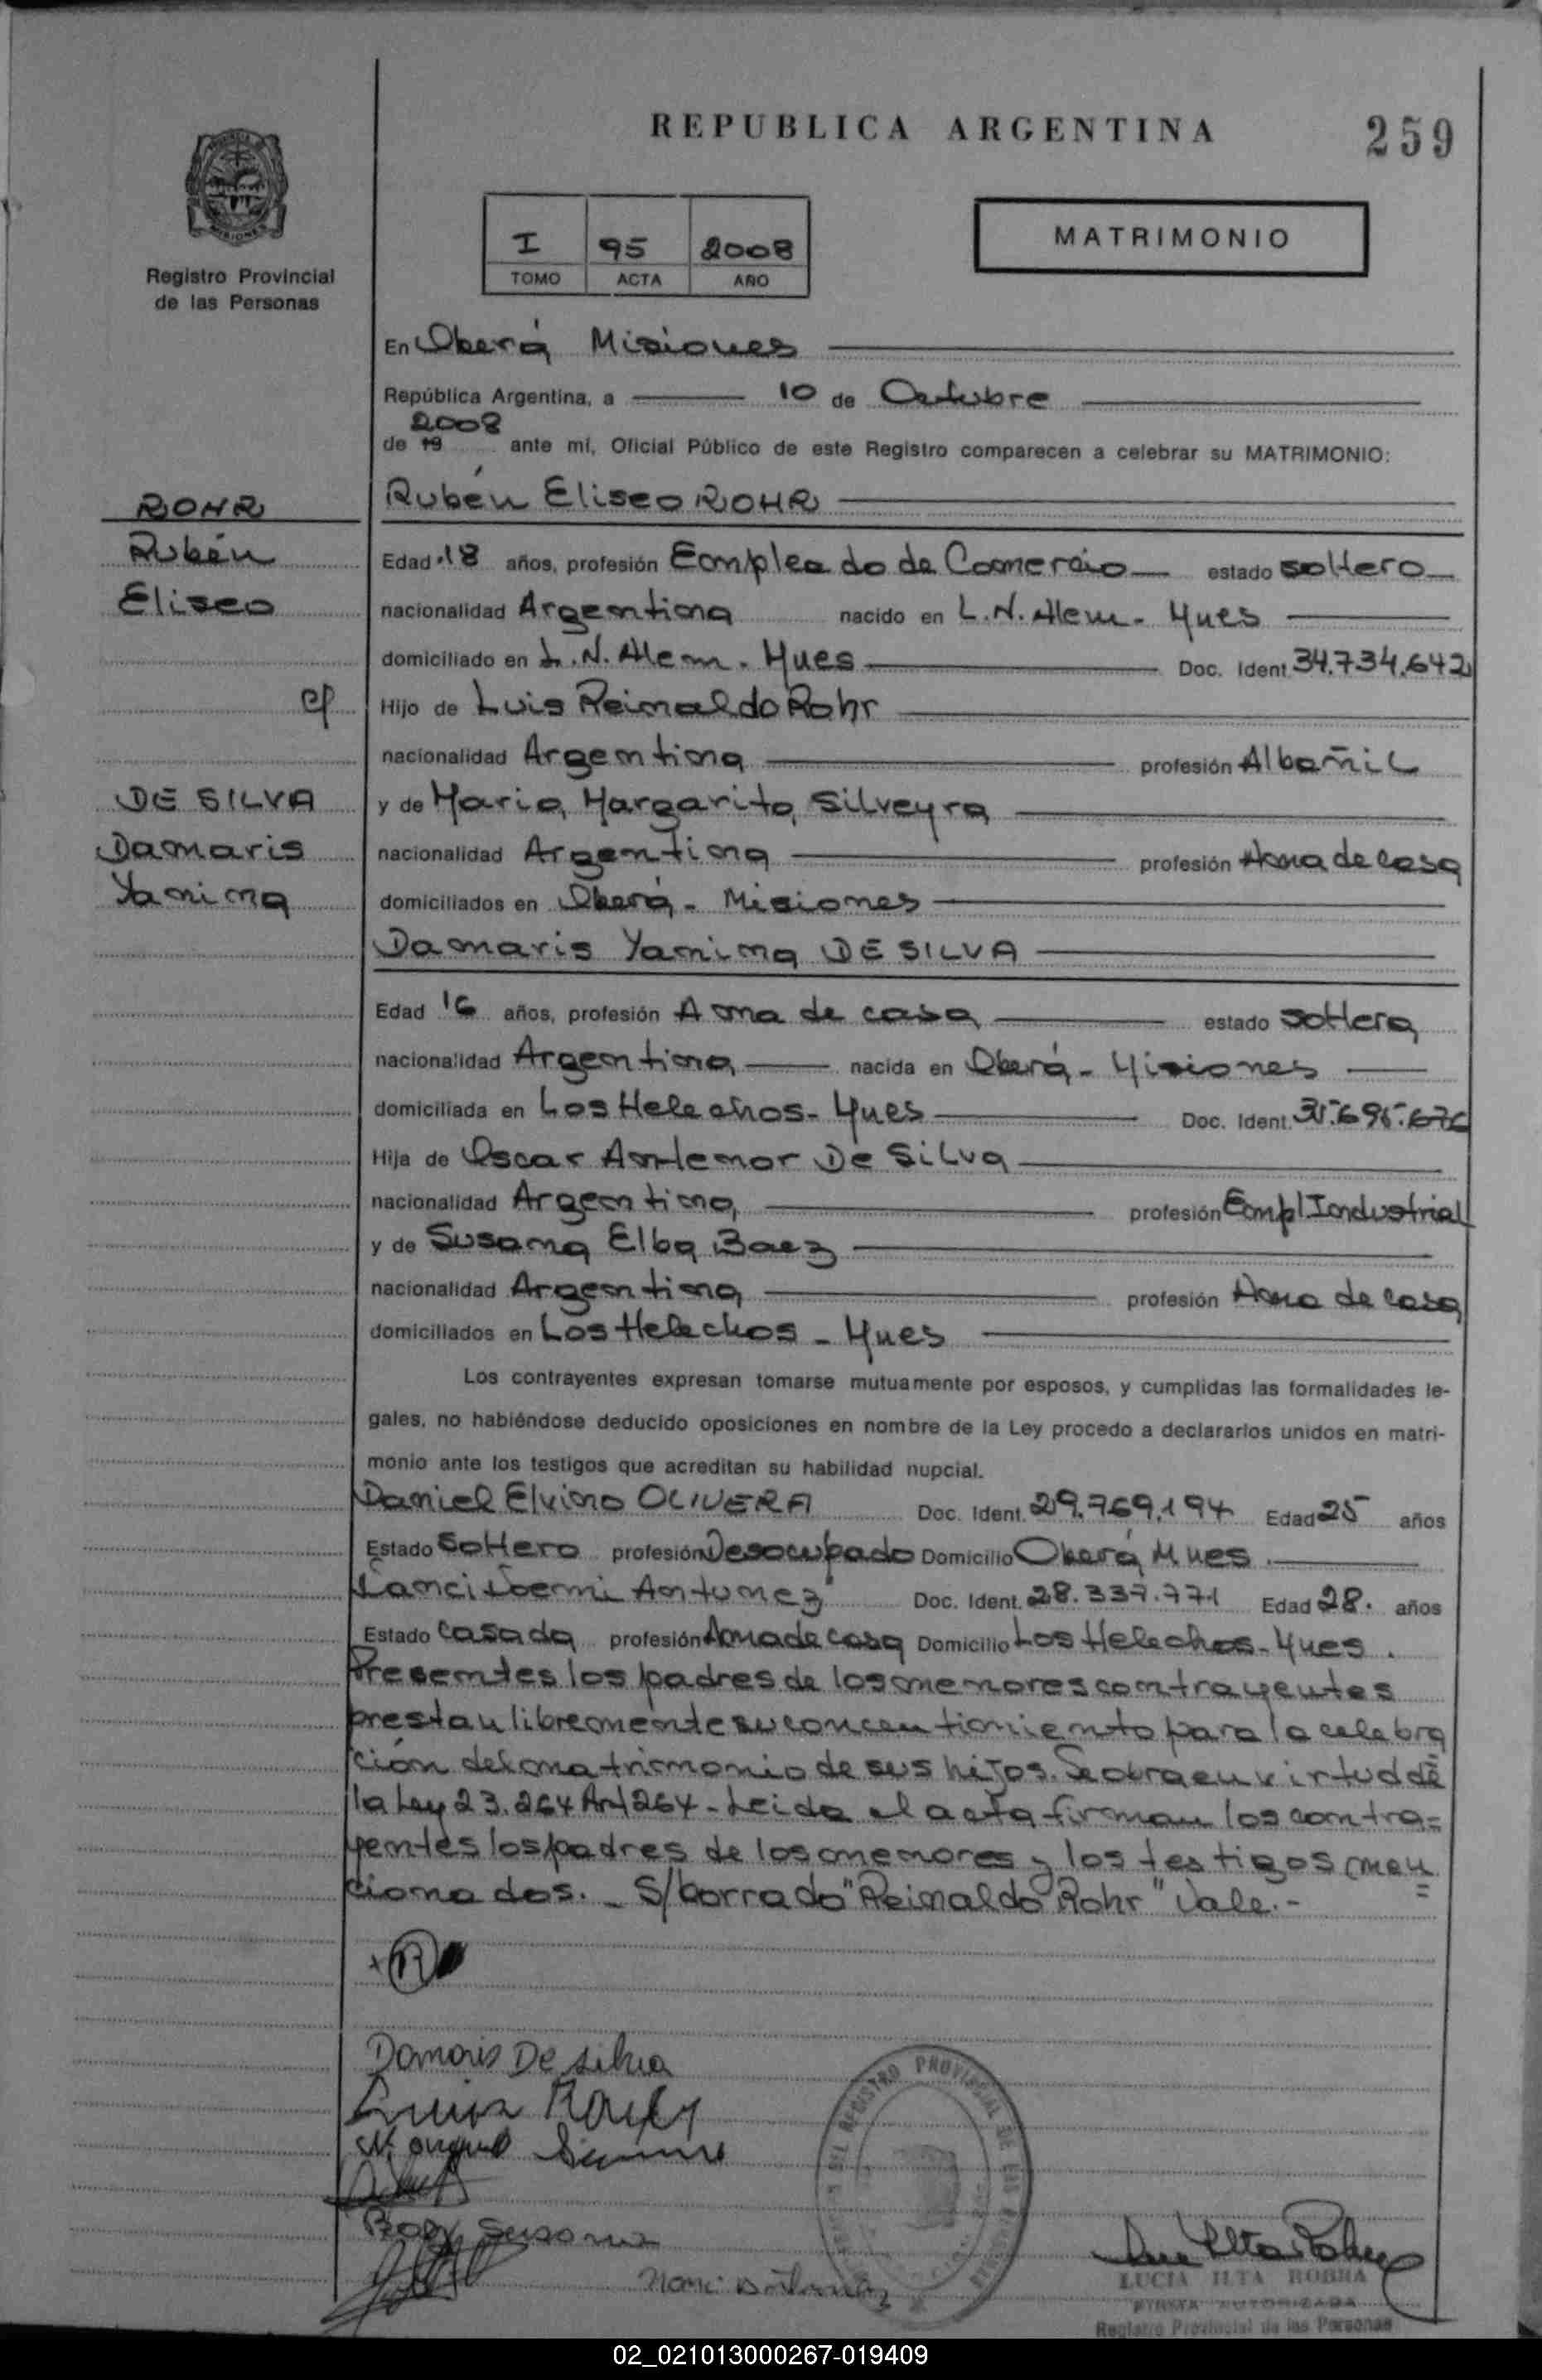 REPUBLICA ARGENTINA
259
Registro Provincial
de las Personas
I 95 2008
TOMO ACTA AÑO
MATRIMONIO
En Oberá Misiones
República Argentina, a 10 de Octubre
2008
de 19 ante mí, Oficial Público de este Registro comparecen a celebrar su MATRIMONIO:
ROHR
Rubén
Eliseo
Rubén Eliseo ROHR
Edad 18 años, profesión Empleado de Comercio estado soltero
nacionalidad Argentina nacido en L.N. Alem - Mnes
domiciliado en L.N. Alem - Mnes Doc. Ident. 34.734.642
Hijo de Luis Reinaldo Rohr
nacionalidad Argentina profesión Albañil
y de Maria Margarita Silveyra
nacionalidad Argentina profesión Ama de casa
domiciliados en Oberá - Misiones
c/
DE SILVA
Damaris
Yanina
Damaris Yanina DE SILVA
Edad 16 años, profesión Ama de casa estado soltera
nacionalidad Argentina nacida en Oberá - Misiones
domiciliada en Los Helechos - Mnes Doc. Ident. 35.695.676
Hija de Oscar Antenor De Silva
nacionalidad Argentina profesión Empl Industrial
y de Susana Elba Baez
nacionalidad Argentina profesión Ama de casa
domiciliados en Los Helechos - Mnes
Los contrayentes expresan tomarse mutuamente por esposos, y cumplidas las formalidades le-
gales, no habiéndose deducido oposiciones en nombre de la Ley procedo a declararlos unidos en matri-
monio ante los testigos que acreditan su habilidad nupcial.
Daniel Elvino OLIVERA Doc. Ident. 29.769.194 Edad 25 años
Estado Soltero profesión Desocupado Domicilio Oberá Mnes.
Noemi Antunez Doc. Ident. 28.337.771 Edad 28. años
Estado casada profesión Ama de casa Domicilio Los Helechos - Mnes.
Presentes los padres de los menores contrayentes
prestan libremente su concentimiento para la celebra
ción del matrimonio de sus hijos. Se obra en virtud de
la Ley 23.264 Art 264 - Leida el acta firman los contra=
yentes los padres de los menores y los testigos men
cionados. - S/borrado "Reinaldo Rohr" Vale. -
Damaris De silva
Baez Susana
LUCIA ILTA ROBRA
FIRMA AUTORIZADA
Registro Provincial de las Personas
02_021013000267-019409